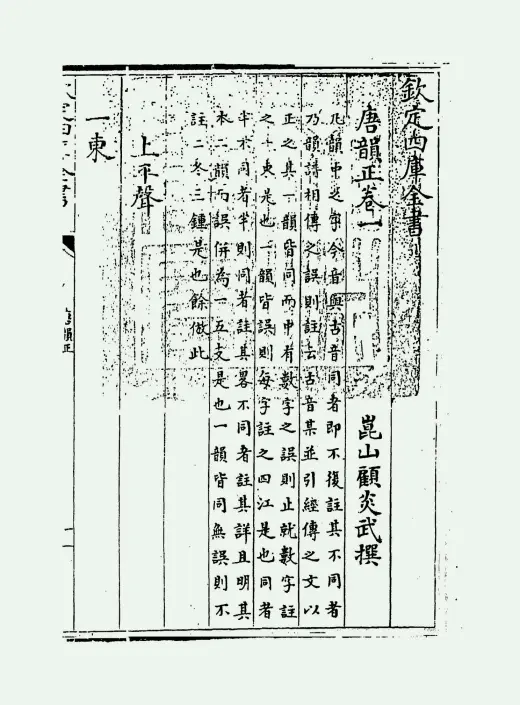 欽定四庫全書
唐韻正卷一
崑山顧炎武撰
凡韻中之字今音與古音同者即不復註其不同者
乃韻譜相傳之誤則註云古音某並引經傳之文以
正之其一韻皆同而中有數字之誤則止就數字註
之一東是也一韻皆誤則每字註之四江是也同者
半不同者半則同者註其畧不同者註其詳且明其
本二韻而誤併為一五支是也一韻皆同無誤則不
註二冬三鍾是也餘倣此
上平聲
一東
唐韻正